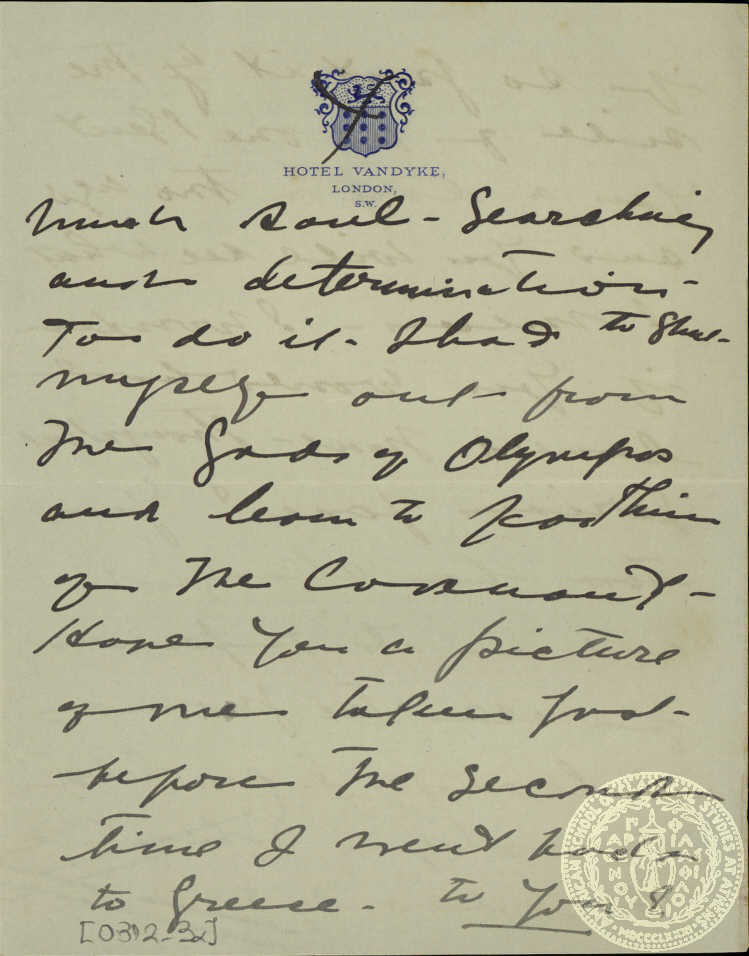 HOTEL VANDYKE,
LONDON,
S.W.
much soul-searching
and determination
to do it - I had to shut
myself out from
the Gods of Olympos
and learn to
of the Covenant -
Have you a picture
of me taken just
before the second
time I went back
to Greece - to you?
[0392-32]
AMERICAN SCHOOL OF CLASSICAL STUDIES AT ATHENS
MDCCCLXXXI